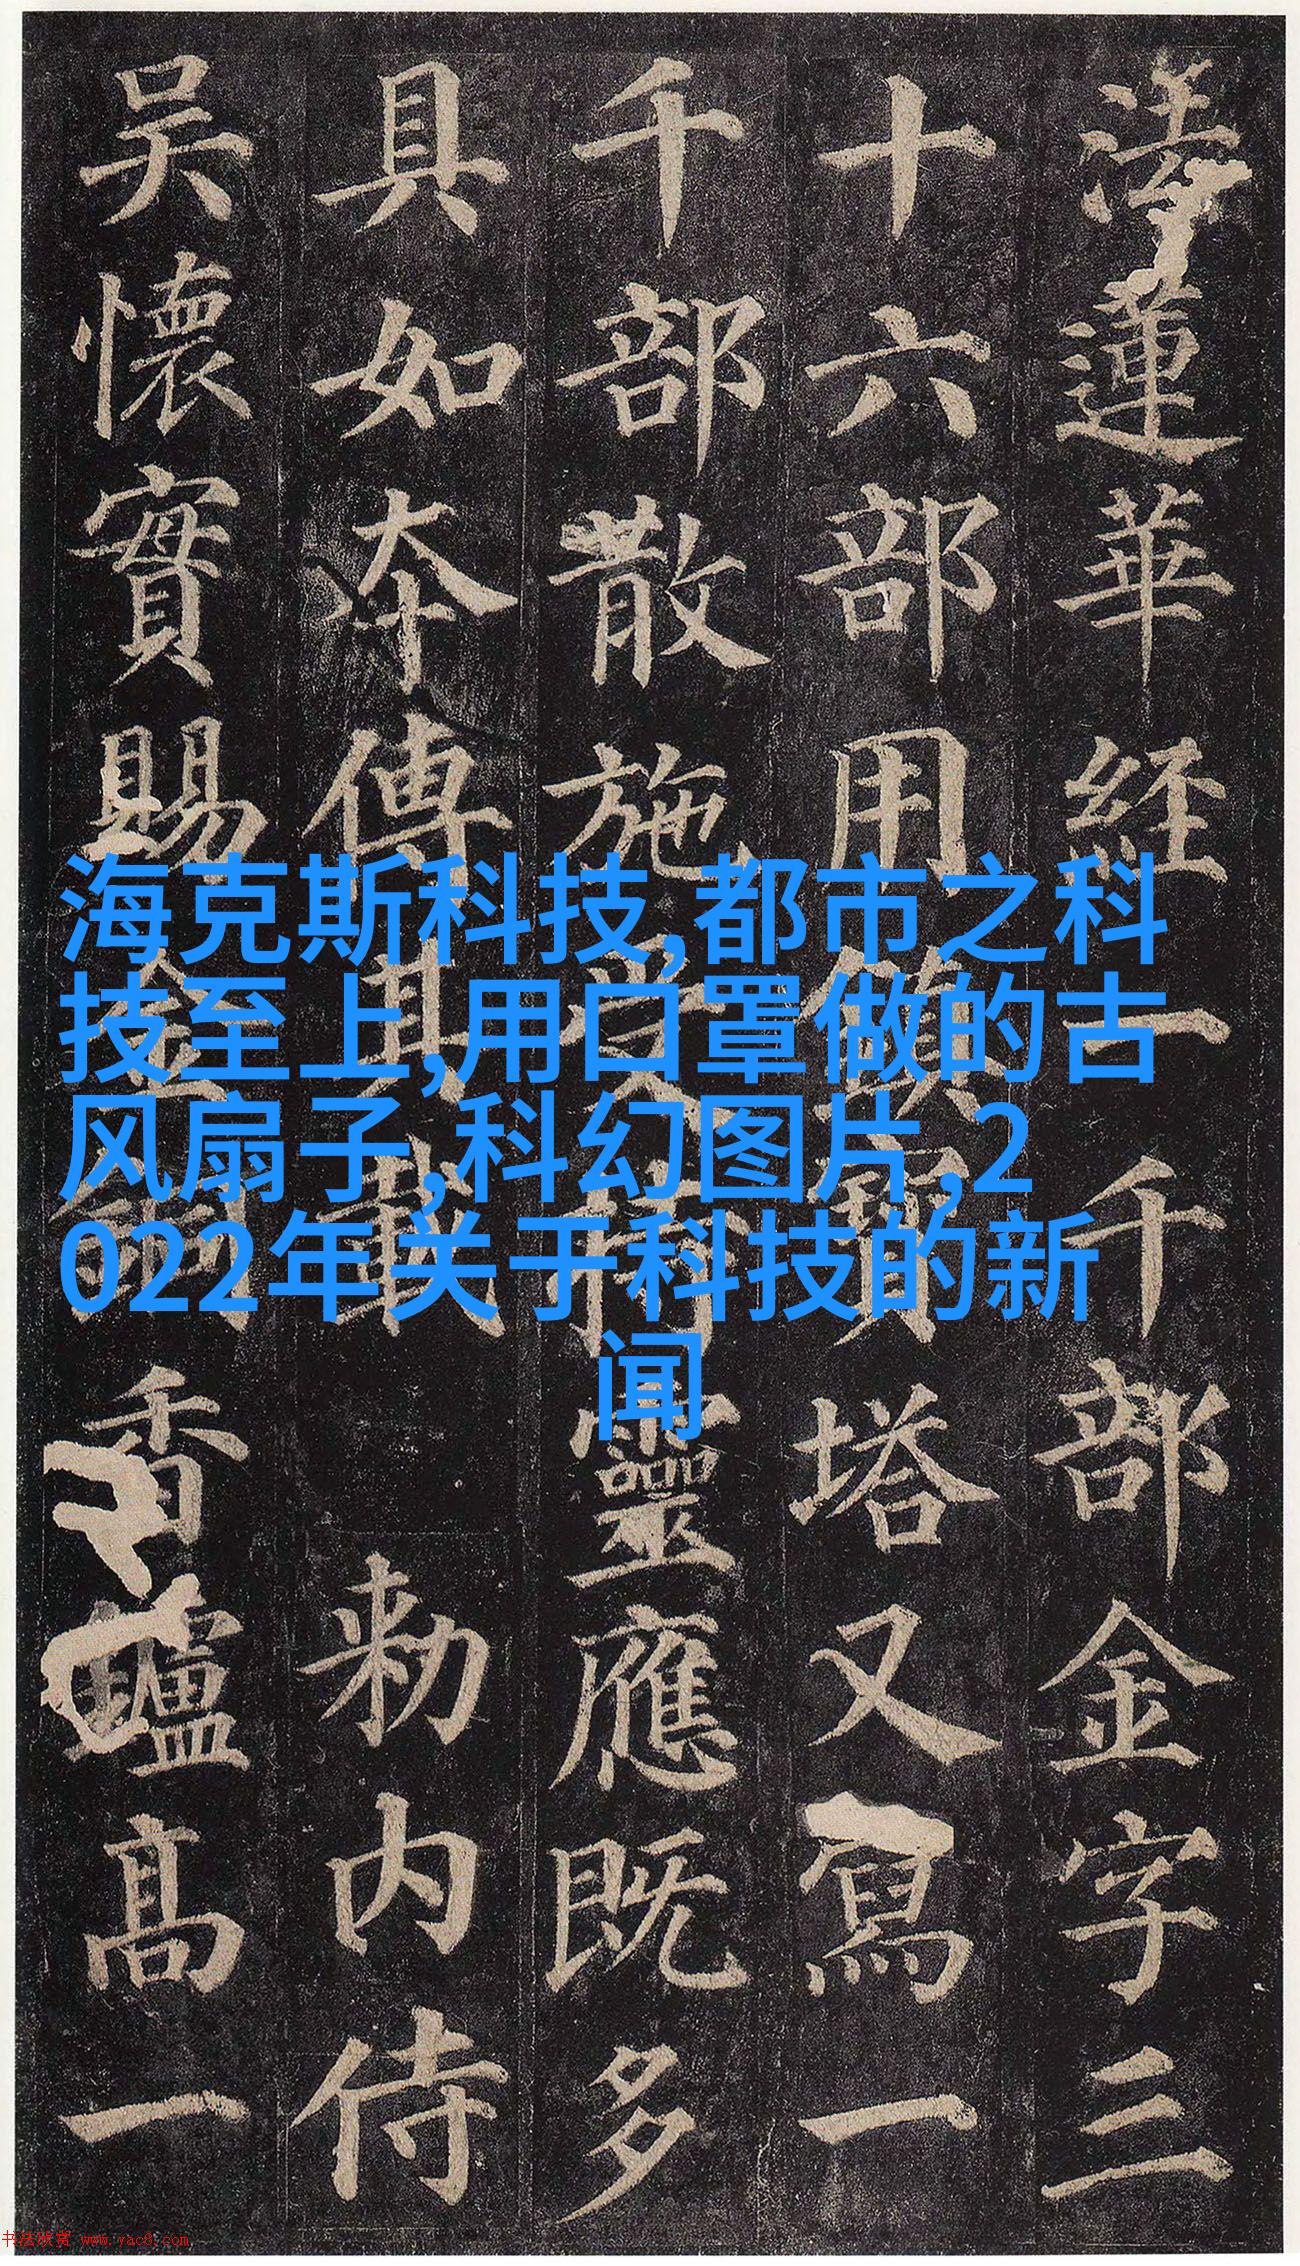 法蓮華經一千部金字三
十六部用鎮寶塔又寫一
千部散施受持靈應既多
具如本傳其載 勑内侍
吴懷實賜金銅香爐高一
海克斯科技,都市之科
技至上,用口罩做的古
风扇子,科幻图片,2
022年关于科技的新
闻
书法欣赏 www.yac8.com